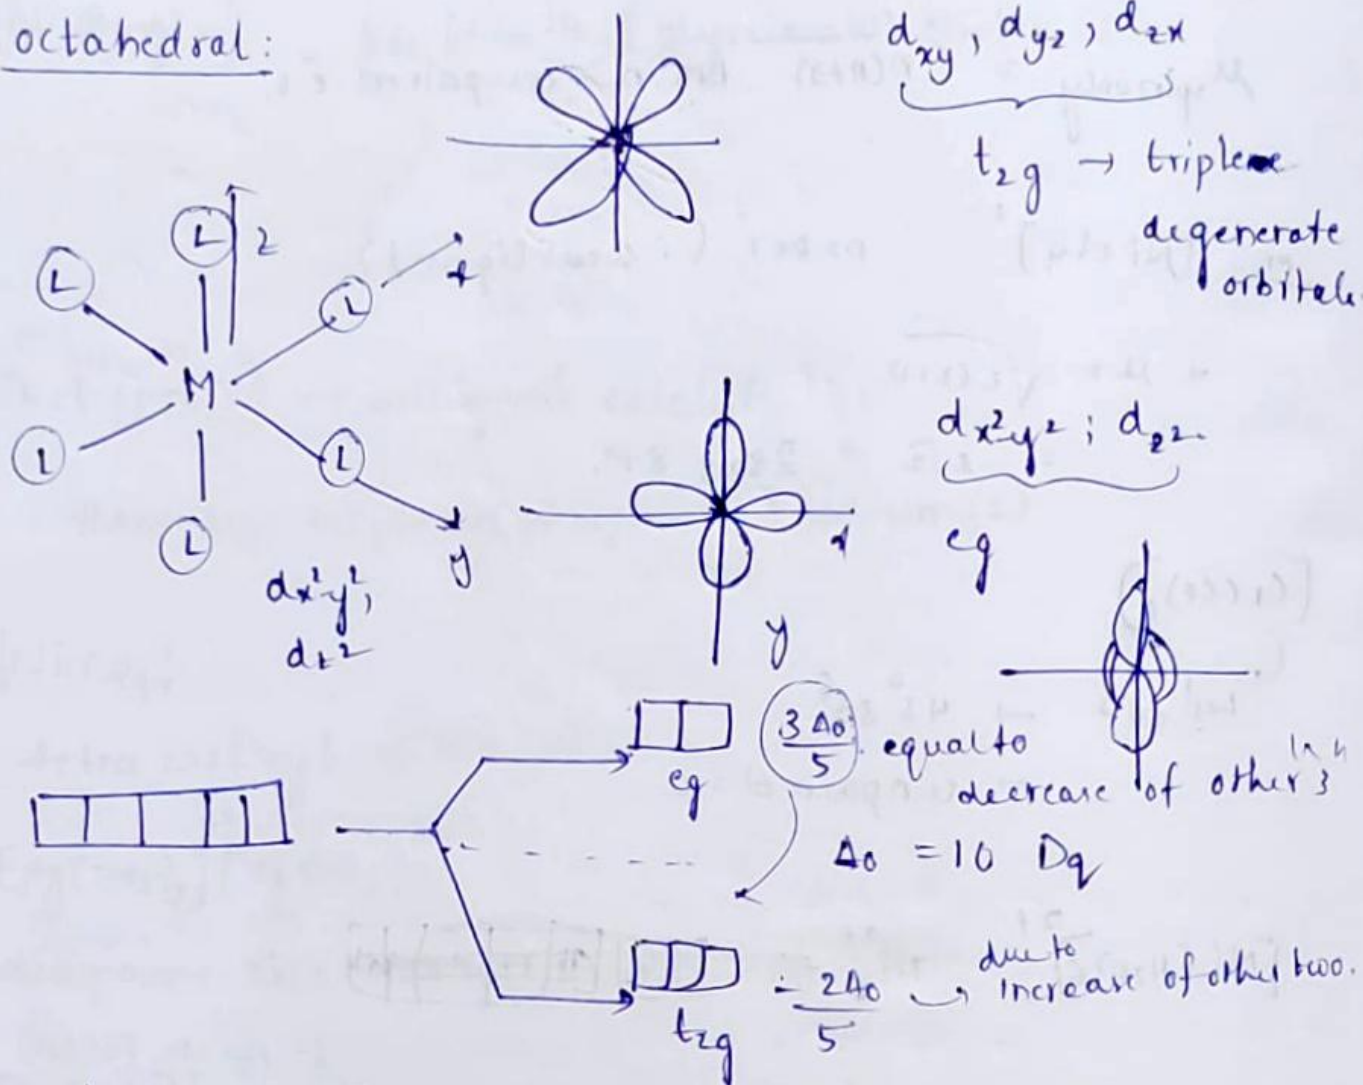 octahedral:
d_xy, d_yz, d_zx
t_2g → triplene
degenerate
orbitals.
L
z
L
L
x
M
L
L
L
y
dx²-y²,
dz²
dx²-y² ; dz².
eg
x
y
eg
3Δo/5 equal to
decrease of other 3
Δo = 10 Dq
t_2g
- 2Δo/5 → due to
increase of other two.